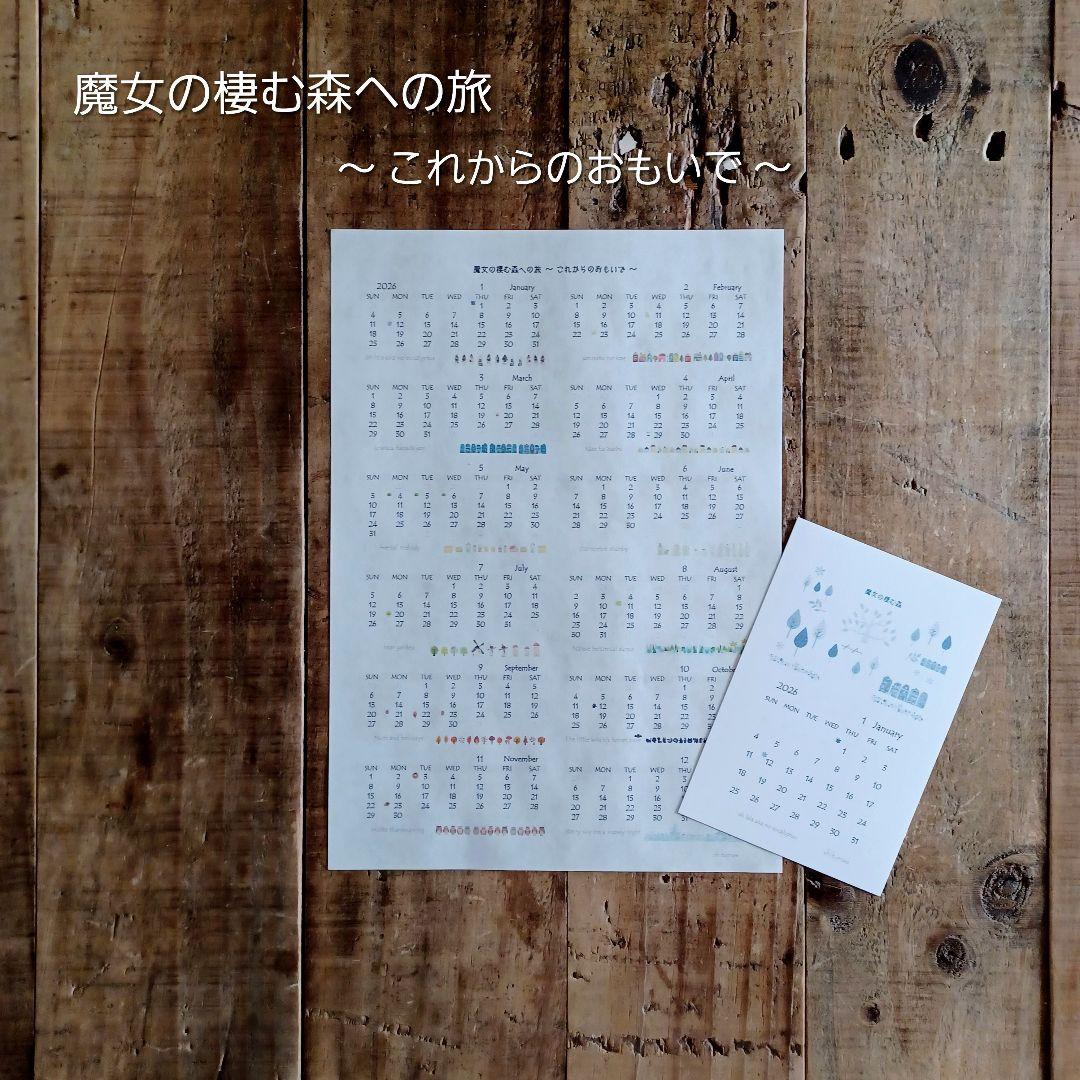 魔女の棲む森への旅
～ これからのおもいで ～
魔女の棲む森への旅 ～ これからのおもいで ～
2026 1 January
SUN MON TUE WED THU FRI SAT
1 2 3
4 5 6 7 8 9 10
11 12 13 14 15 16 17
18 19 20 21 22 23 24
25 26 27 28 29 30 31
2 February
SUN MON TUE WED THU FRI SAT
1 2 3 4 5 6 7
8 9 10 11 12 13 14
15 16 17 18 19 20 21
22 23 24 25 26 27 28
3 March
SUN MON TUE WED THU FRI SAT
1 2 3 4 5 6 7
8 9 10 11 12 13 14
15 16 17 18 19 20 21
22 23 24 25 26 27 28
29 30 31
4 April
SUN MON TUE WED THU FRI SAT
1 2 3 4
5 6 7 8 9 10 11
12 13 14 15 16 17 18
19 20 21 22 23 24 25
26 27 28 29 30
5 May
SUN MON TUE WED THU FRI SAT
1 2
3 4 5 6 7 8 9
10 11 12 13 14 15 16
17 18 19 20 21 22 23
24 25 26 27 28 29 30
31
6 June
SUN MON TUE WED THU FRI SAT
1 2 3 4 5 6
7 8 9 10 11 12 13
14 15 16 17 18 19 20
21 22 23 24 25 26 27
28 29 30
7 July
SUN MON TUE WED THU FRI SAT
1 2 3 4
5 6 7 8 9 10 11
12 13 14 15 16 17 18
19 20 21 22 23 24 25
26 27 28 29 30 31
8 August
SUN MON TUE WED THU FRI SAT
1
2 3 4 5 6 7 8
9 10 11 12 13 14 15
16 17 18 19 20 21 22
23 24 25 26 27 28 29
30 31
9 September
SUN MON TUE WED THU FRI SAT
1 2 3 4 5
6 7 8 9 10 11 12
13 14 15 16 17 18 19
20 21 22 23 24 25 26
27 28 29 30
10 Octob
SUN MON TUE WED THU FRI
1 2
4 5 6 7 8 9
11 12 13 14 15
18 19 20 21 22
25 26 27 28 29
11 November
SUN MON TUE WED THU FRI SAT
1 2 3 4 5 6 7
8 9 10 11 12 13 14
15 16 17 18 19 20 21
22 23 24 25 26 27 28
29 30
12
SUN MON TUE WED THU
1 2 3
6 7 8 9 10
13 14 15 16
20 21 22 23
27 28 29 30 31
魔女の棲む森
2026 1 January
SUN MON TUE WED THU FRI SAT
1 2 3
4 5 6 7 8 9 10
11 12 13 14 15 16 17
18 19 20 21 22 23 24
25 26 27 28 29 30 31